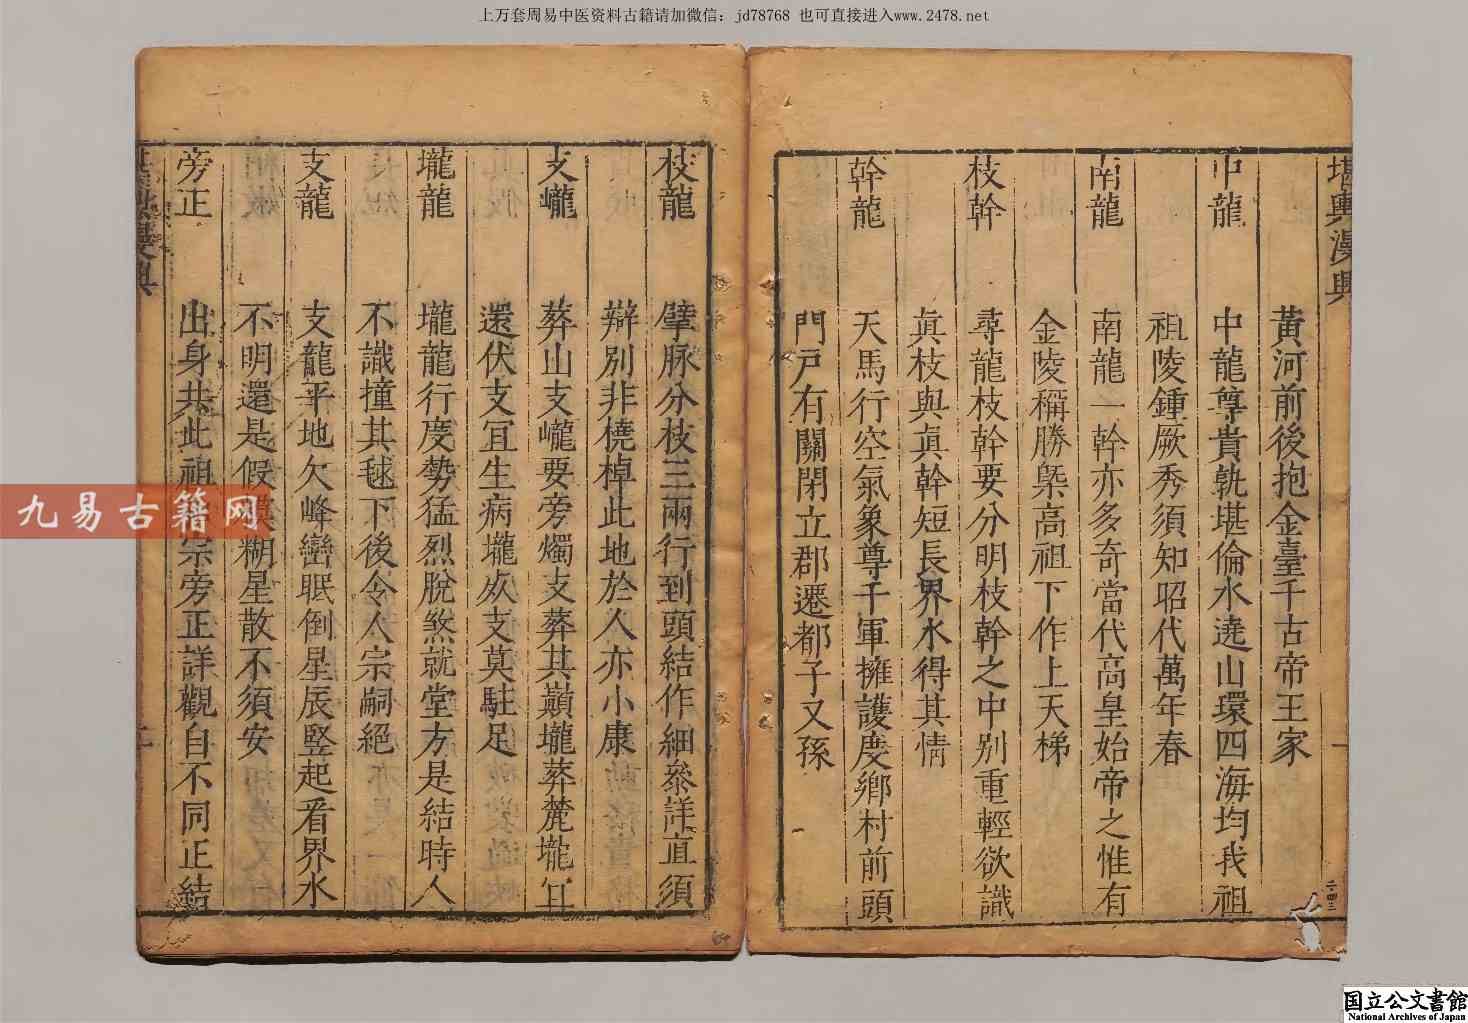 上万套周易中医资料古籍请加微信：jd78768 也可直接进入www.2478.net
堪輿漫興
黃河前後抱金臺千古帝王家
中龍 中龍尊貴孰堪倫水遶山環四海均我祖
祖陵鍾厥秀須知昭代萬年春
南龍 南龍一幹亦多奇當代高皇始帝之惟有
金陵稱勝槩高祖下作上天梯
枝幹 尋龍枝幹要分明枝幹之中別重輕欲識
眞枝與眞幹短長界水得其情
幹龍 天馬行空氣象尊千軍擁護度鄉村前頭
門戶有關閉立郡遷都子又孫
枝龍 擘脉分枝三兩行到頭結作細叅詳直須
辯別非橈棹此地於人亦小康
支巃 葬山支巃要旁燭支葬其巔壠葬麓壠宜
還伏支宜生病壠处支莫駐足
壠龍 壠龍行度勢猛烈脫煞就堂方是結時人
不識撞其毬下後令人宗嗣絕
支龍 支龍平地欠峰巒眠倒星辰竪起看界水
不明還是假糢糊星散不須安
旁正 出身共此祖宗旁正詳觀自不同正結
九易古籍网
国立公文書館
National Archives of Japan